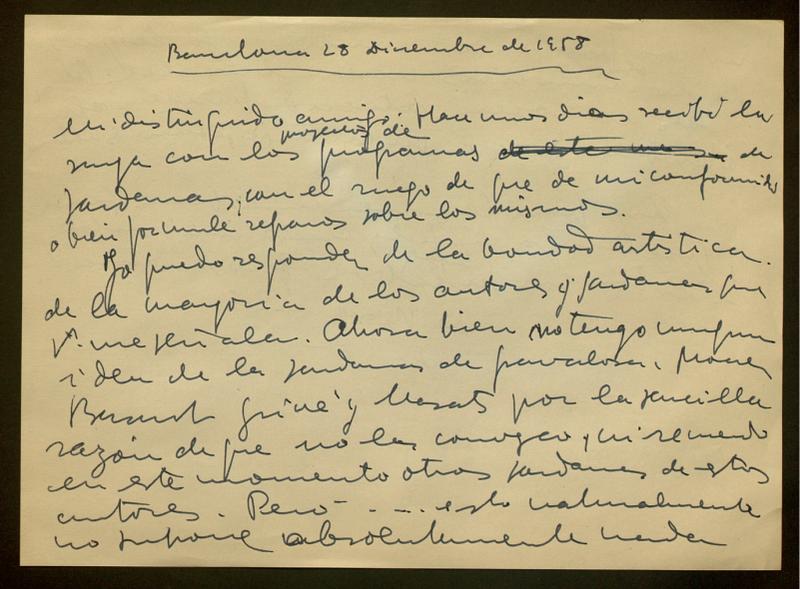 Barcelona 28 Diciembre de 1958
Mi distinguido amigo: Hace unos dias recibí la
suya con los proyectos de programas de este mes de
sardanas, con el ruego de que de mi conformidad
o bien formule reparos sobre los mismos.
Yo puedo responder de la bondad artística
de la mayoria de los autores y sardanas que
V. me señala. Ahora bien no tengo ninguna
idea de la sardanas de
y por la sencilla
razón de que no las conozco, ni recuerdo
en este momento otras sardanas de estos
autores. Pero - . . . esto naturalmente
no supone absolutamente nada